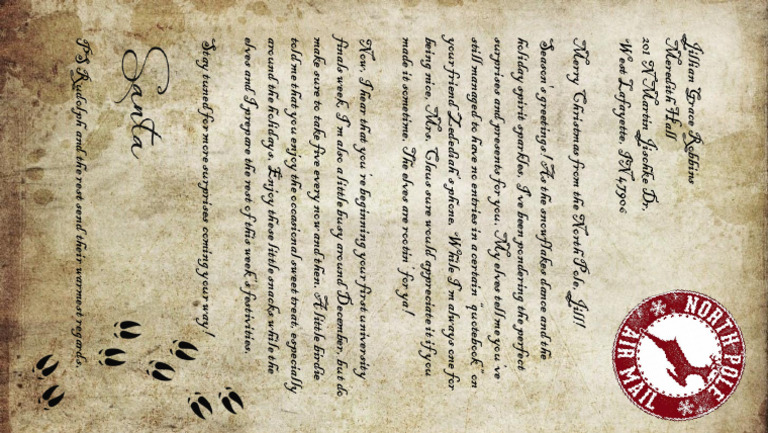 Jillian Grace Robbins
Meredith Hall
201 N Martin Jischke Dr.
West Lafayette, IN 47906
Merry Christmas from the North Pole, Jill!
Season's greetings! As the snowflakes dance and the
holiday spirit sparkles, I've been pondering the perfect
surprises and presents for you. My elves tell me you've
still managed to have no entries in a certain "quotebook" on
your friend Zedediah's phone. While I'm always one for
being nice, Mrs. Claus sure would appreciate it if you
made it sometime. The elves are rootin' for ya!
Now, I hear that you're beginning your first university
finals week. I'm also a little busy around December, but do
make sure to take five every now and then. A little birdie
told me that you enjoy the occasional sweet treat, especially
around the holidays. Enjoy these little snacks while the
elves and I prepare the rest of this week's festivities.
Stay tuned for more surprises coming your way!
Santa
PS Rudolph and the rest send their warmest regards.
NORTH POLE
AIR MAIL